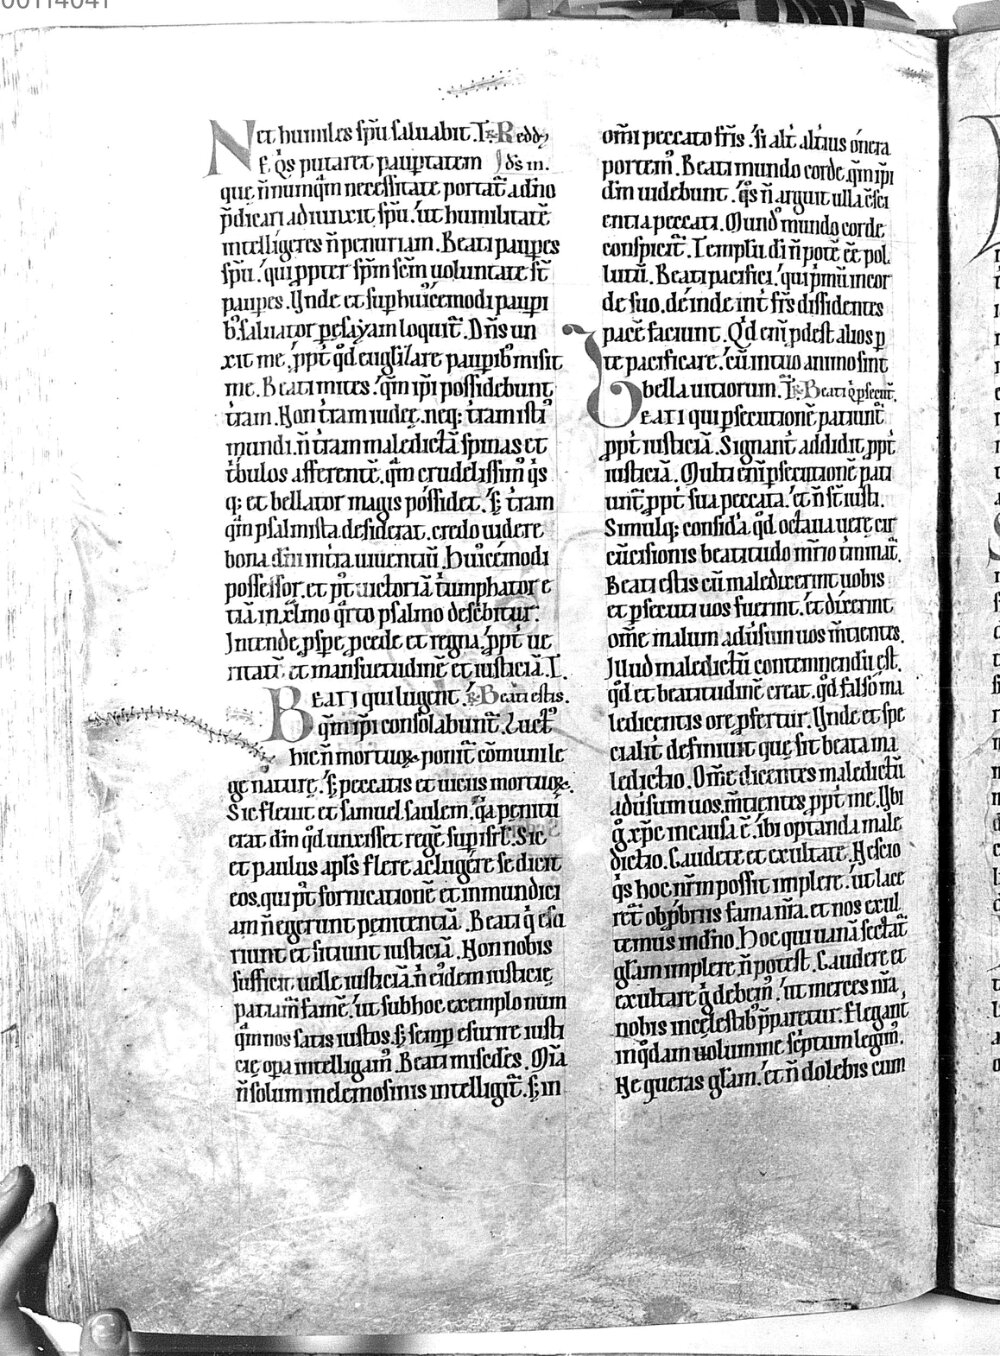 00114041
Net humiles sp̄u saluabit. L̄. ℟ Reddꝫ
E. Q̊s putaret paup̄tatem ds̄ m̄.
que n̄ nunq̄m necessitate portat̄ a dn̄o
p̄dicari adiunxit sp̄u. ut humilitatē
intelligeres n̄ penuriam. Beati paup̄es
sp̄u. qui pp̄ter sp̄m sc̄m uoluntate st̄
paup̄es. Unde et sup̄ huic̄emodi paup̄i
bꝰ saluator p̄ esayam loquit̄. Dn̄s un
xit me, pp̄t q̄d euḡlizare paup̄ibꝰ misit
me. Beati mites. qm̄ ip̄i possidebunt
tr̄am. Non tr̄am iudeę. neqꝫ tr̄am isti
mundi. n̄ tr̄am maledictā spinas et
tribulos afferentē. qm̄ crudelissim̄ q̊s
qꝫ et bellator magis possidet. sꝫ tr̄am
qm̄ psalmista desiderat. credo uidere
bona dn̄i in tr̄a uiuentiū. Huic̄emodi
possessor. et p̄t uictoriā triumphator e
tiā in xl̄mo q̄rto psalmo describitur.
Intende, p̄spe, p̄cede et regna, pp̄t ue
ritatē et mansuetudinē et iusticiā. L̄.
Beati qui lugent. ℟ Beati estis.
qm̄ ip̄i consolabunt̄. Luctꝰ
hic n̄ mortuoꝝ ponit̄ cōmuni le
ge naturę. sꝫ peccatis et uiciis mortuoꝝ.
Sic fleuit et samuel saulem. q̄a penitū
erat dn̄m q̄d unxisset regē sup̄ isrl̄. Sic
et paulus apl̄s flere ac lugere se dicit
eos, qui p̄t fornicationē et inmundici
am n̄ egerunt penitentiā. Beati q̄ esu
riunt et sitiunt iusticiā. Non nobis
sufficit uelle iusticiā. n̄ eidem iusticię
patiam̄ famē. ut sub hoc exemplo num
q̄m nos satis iustos. sꝫ semp̄ esurire iusti
cię opa intelligam̄. Beati mis̄cdes. Mīa
n̄ solum in elemosinis intelligit̄. sꝫ in
om̄i peccato fr̄is. si alt̄ alt̄ius onera
portem̄. Beati mundo corde, qm̄ ip̄i
dm̄ uidebunt. q̊s n̄ arguit ulla c̄sci
entia peccati. Mundꝰ mundo corde
conspicit̄. Templū. di n̄ pot̄ ēe pol
lutū. Beati pacifici. qui p̄mū in cor
de suo. deinde int̄ fr̄s dissidentes
pacē faciunt. Qd̄ eni p̄dest alios p̄
te pacificare. cū in tuo animo sint
bella uitiorum. L̄. ℟ Beati q̄ p̄secut̄.
Beati qui p̄secutionē patiunt̄
pp̄t iusticiā. Signant̄ addidit, pp̄t
iusticiā. Multi eni p̄secutionē pati
unt̄, pp̄t sua peccata. et n̄ st̄ iusti.
Simulqꝫ consid̄a. q̄d octaua uere cir
cūcisionis beatitudo mr̄io t̄minat̄.
Beati estis cū maledixerint uobis
et p̄secuti uos fuerint. et dixerint
om̄e malum adūsum uos m̄tientes.
Illud maledictū contemnendū est.
q̄d et beatitudinē creat. q̄d falso ma
ledicentis ore, p̄fertur. Unde et spe
cialit̄ definiuit que sit beata ma
ledictio. Om̄e dicentes maledictū
adūsum uos. m̄tientes, pp̄t me. Ubi
g̊ xp̄c in causa ē. ibi optanda male
dictio. Gaudete et exultate. Nescio
q̊s hoc nr̄m possit implere. ut lace
ret̄ obp̄briis fama nr̄a. et nos exul
temus in dn̄o. Hoc qui uanā sectat̄
glām implere n̄ potest. Gaudere et
exultare g̊ debem̄. ut merces nr̄a,
nobis in celestibꝰ p̄paretur. Elegant̄
in q̊dam uolumine sc̄ptum legim̄.
Ne queras glām. et n̄ dolebis cum